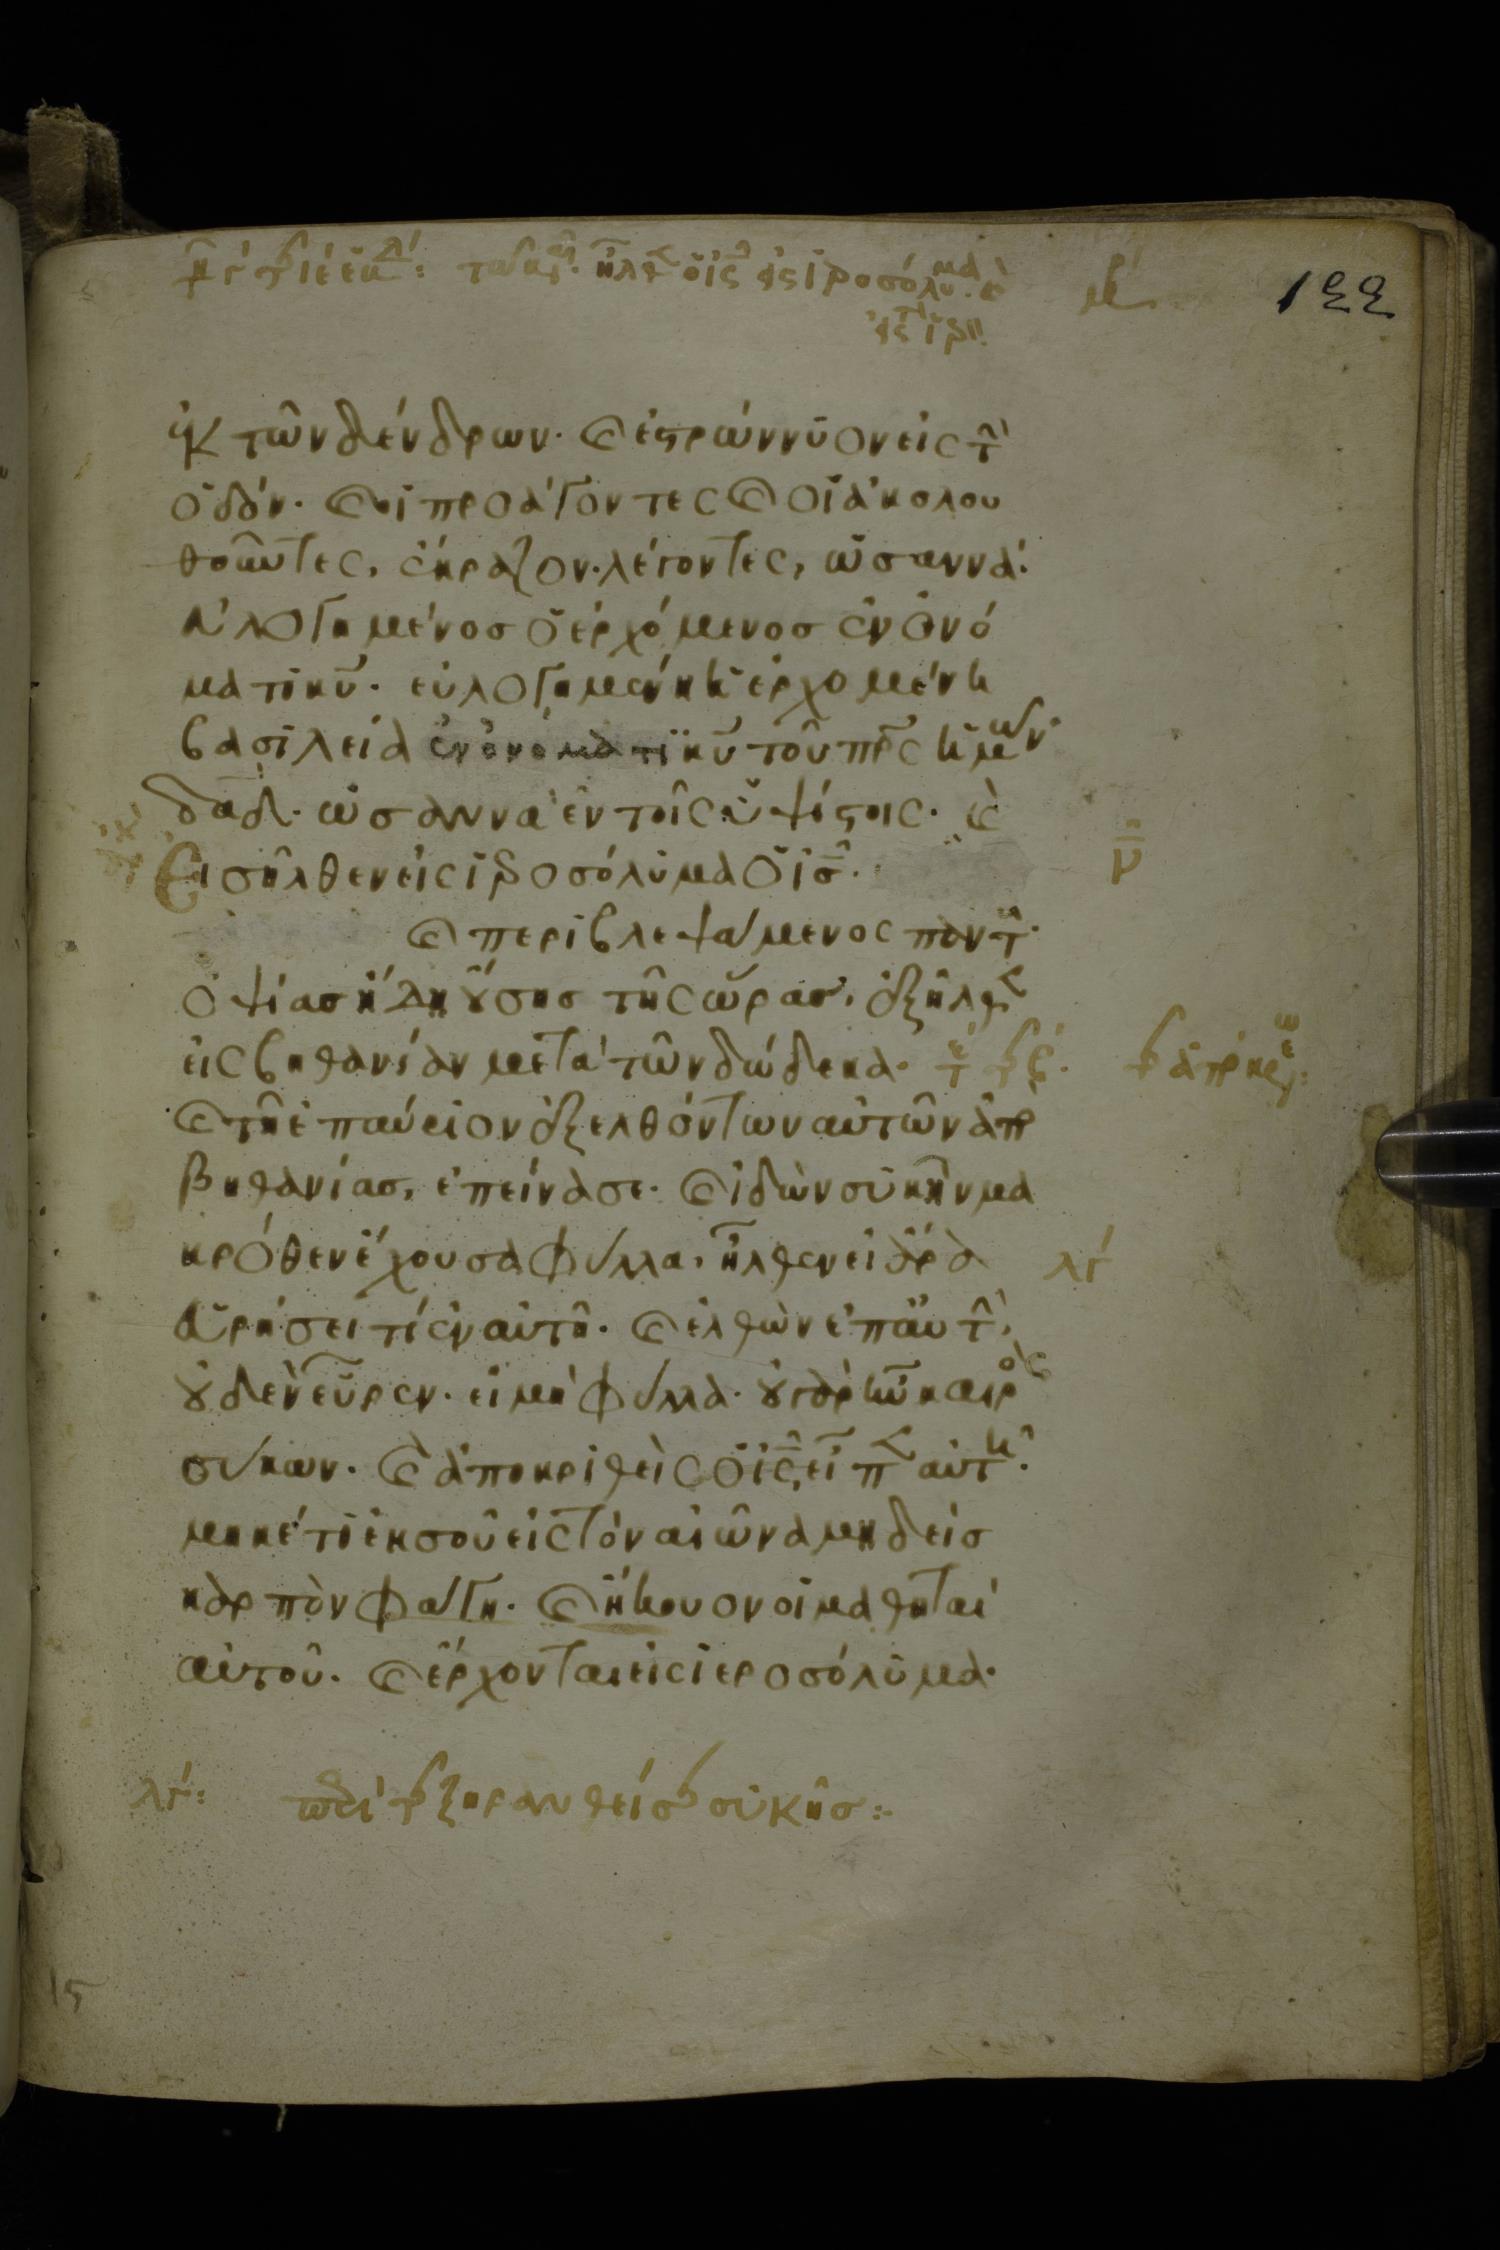 ἐκ τῶν δένδρων. καὶ ἐστρώννυον εἰς τὴν
ὁδόν. καὶ οἱ προάγοντες καὶ οἱ ἀκολου
θοῦντες, ἔκραζον. λέγοντες, ὡσαννά.
εὐλογημένος ὁ ἐρχόμενος ἐν ὀνό
ματι κυ. εὐλογημένη ἡ ἐρχομένη
βασιλεία ἐν ὀνόματι κυ τοῦ πρς ἡμῶν
δαδ. ὡσαννὰ ἐν τοῖς ὑψίστοις. καὶ
Εἰσῆλθεν εἰς ἱεροσόλυμα ὁ ις.
καὶ περιβλεψάμενος πάντα.
ὀψίας ἤδη οὔσης τῆς ὥρας, ἐξῆλθεν
εἰς βηθανίαν μετὰ τῶν δώδεκα.
καὶ τῇ ἐπαύριον ἐξελθόντων αὐτῶν ἀπὸ
βηθανίας, ἐπείνασε. καὶ ἰδὼν συκῆν μα
κρόθεν ἔχουσα φύλλα, ἦλθεν εἰ ἄρα
εὑρήσει τί ἐν αὐτῇ. καὶ ἐλθὼν ἐπ αὐτὴν,
οὐδὲν εὗρεν. εἰ μὴ φύλλα. οὐ γὰρ ἦν καιρὸς
σύκων. καὶ ἀποκριθεὶς ὁ ις, εἶπεν αὐτῇ.
μηκέτι ἐκ σοῦ εἰς τὸν αἰῶνα μηδείς
καρπὸν φάγη. καὶ ἤκουον οἱ μαθηταὶ
αὐτοῦ. καὶ ἔρχονται εἰς ἱεροσόλυμα.
λγ
λγ: περὶ τῆς ξηρανθείσης συκῆς: